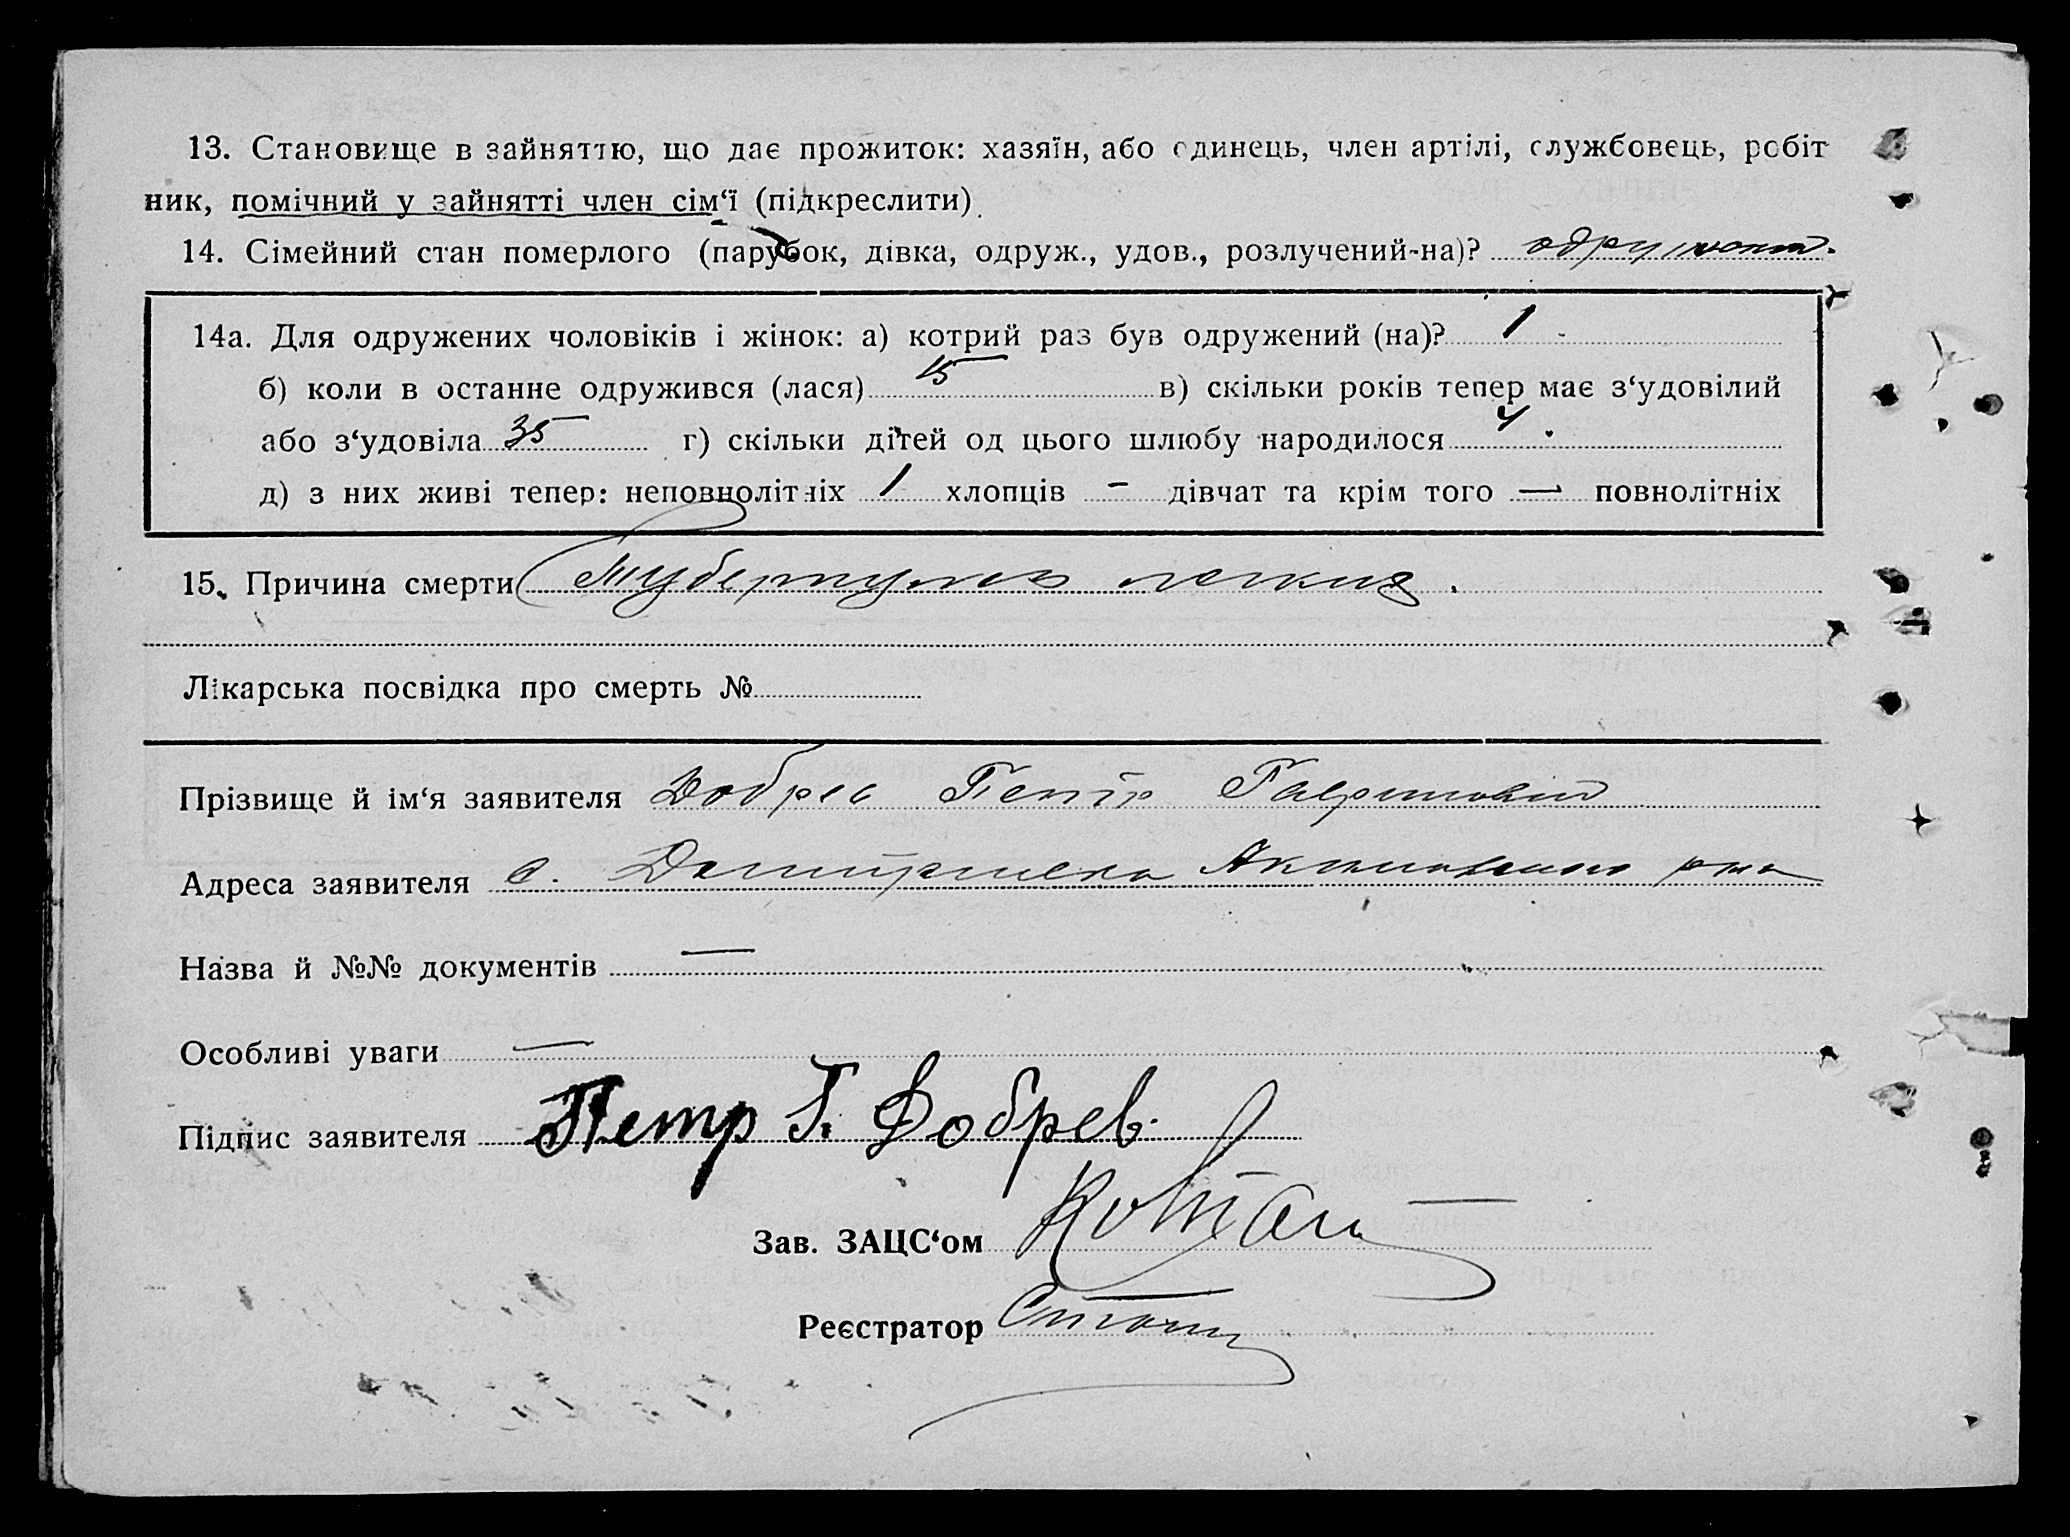 13. Становище в зайняттю, що дає прожиток: хазяїн, або одинець, член артілі, службовець, робіт
ник, помічний у зайнятті член сім‘ї (підкреслити).
14. Сімейний стан померлого (парубок, дівка, одруж., удов., розлучений-на)?
14а. Для одружених чоловіків і жінок: а) котрий раз був одружений (на)? 1
б) коли в останне одружився (лася) 15 в) скільки років тепер має з‘удовілий
або з‘удовіла 35 г) скільки дітей од цього шлюбу народилося 4
д) з них живі тепер: неповнолітніх 1 хлопців - дівчат та крім того — повнолітніх
15. Причина смерти Туберкульоз легких.
Лікарська посвідка про смерть №
Прізвище й ім‘я заявителя Добрев Петр Гаврилович
Адреса заявителя с. Дмитровка
Назва й №№ документів —
Особливі уваги —
Підпис заявителя Петр Г. Добрев.
Зав. ЗАЦС‘ом
Реєстратор